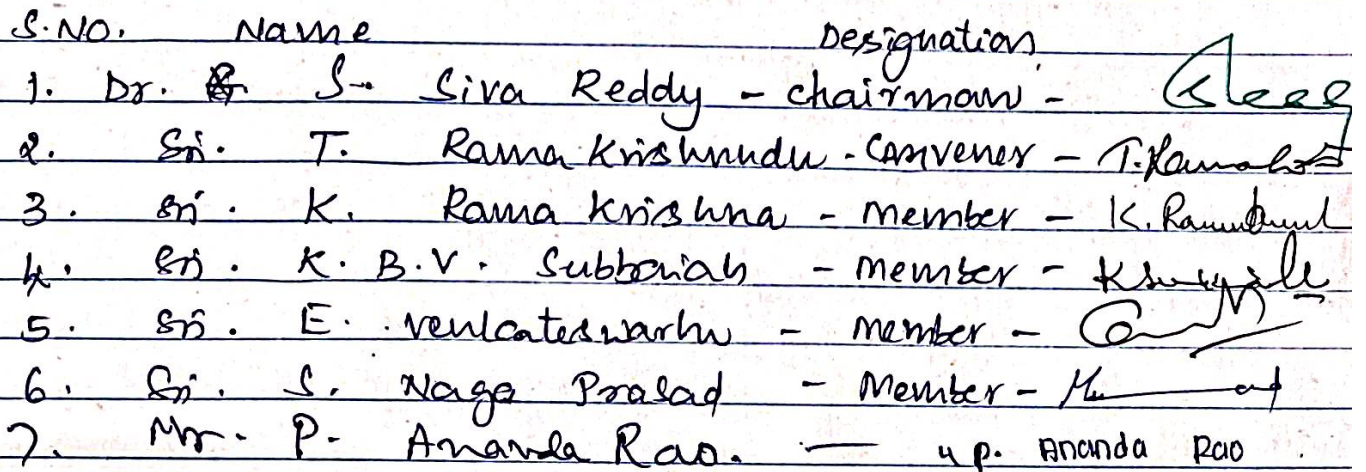 S.NO. Name Designation
1. Dr. S. Siva Reddy - chairman -
2. Sri. T. Rama Krishnudu - Convener - T. Rama
3. Sri. K. Rama Krishna - member - K. Rama
4. Sri. K. B. V. Subbaiah - member -
5. Sri. E. Venkateswarlu - member -
6. Sri. S. Naga Prasad - Member -
7. Mr. P. Ananda Rao. — P. Ananda Rao.